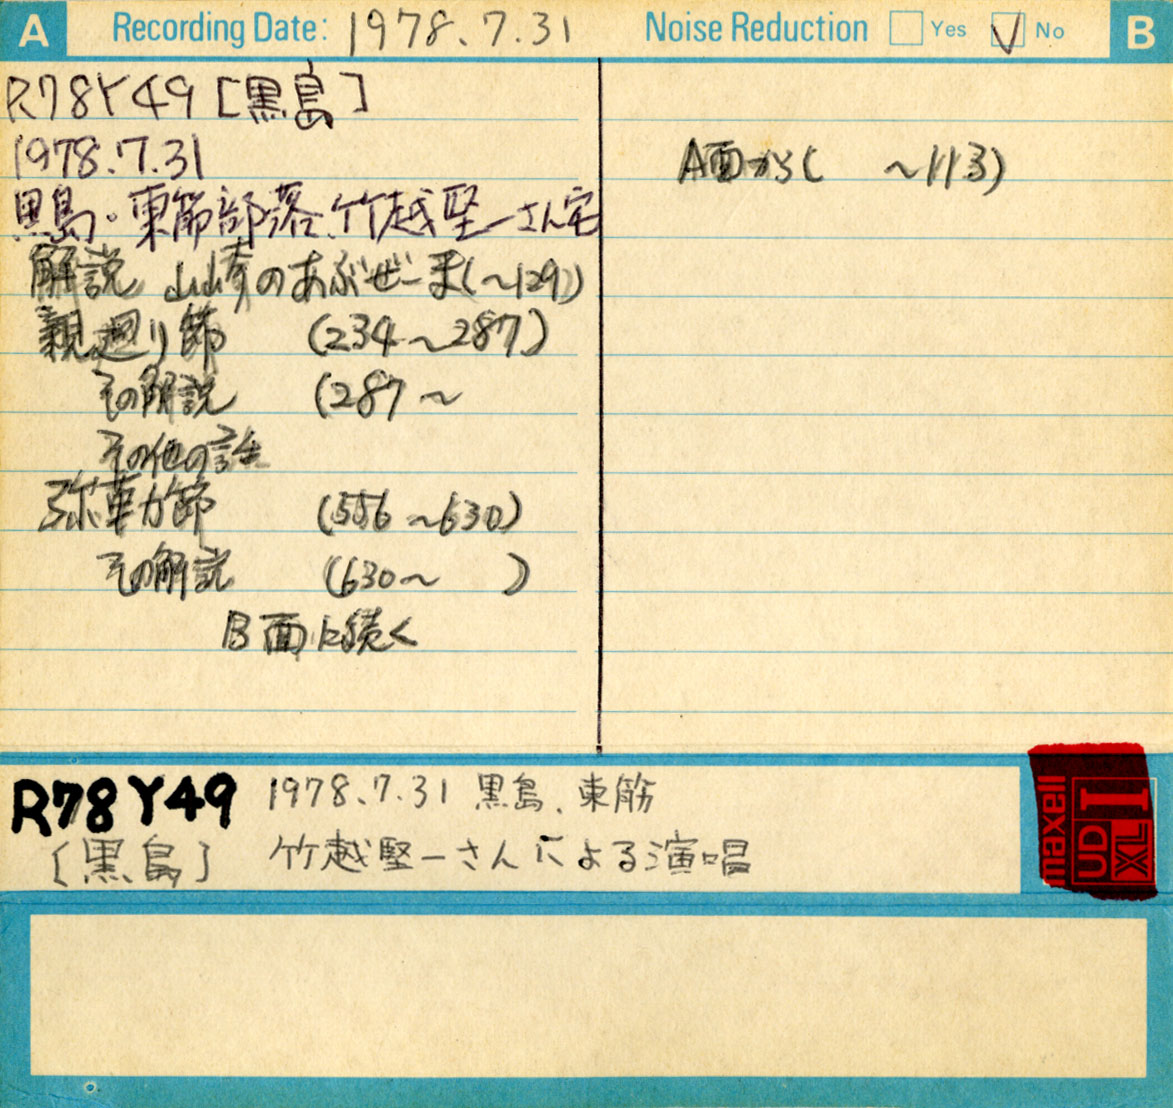 A Recording Date: 1978.7.31 Noise Reduction Yes No B
R78Y49[黒島]
1978.7.31
黒島・東筋部落、竹越堅一さん宅
解説 山崎のあぶぜーま(~129)
親廻り節 (234~287)
その解説 (287~
その他の話
弥重力節 (556~630)
その解説 (630~ )
B面に続く
A面から( ~113)
R78Y49 1978.7.31 黒島、東筋
[黒島] 竹越堅一さんによる演唱
maxell
UD
XL
I